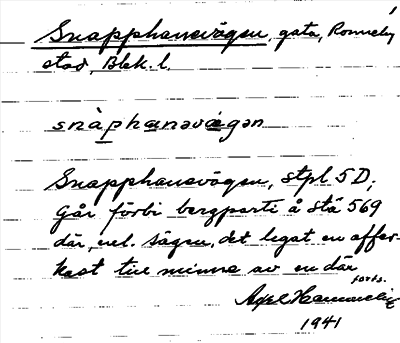 Snapphanevägen, gata, Ronneby
stad, Blek. l.
snàphanəvä́gən
Snapphanevägen, stpl 5D;
går förbi bergparti å stä 569
där, enl. sägen, det legat en offer-
kast till minne av en där
forts.
Axel
1941